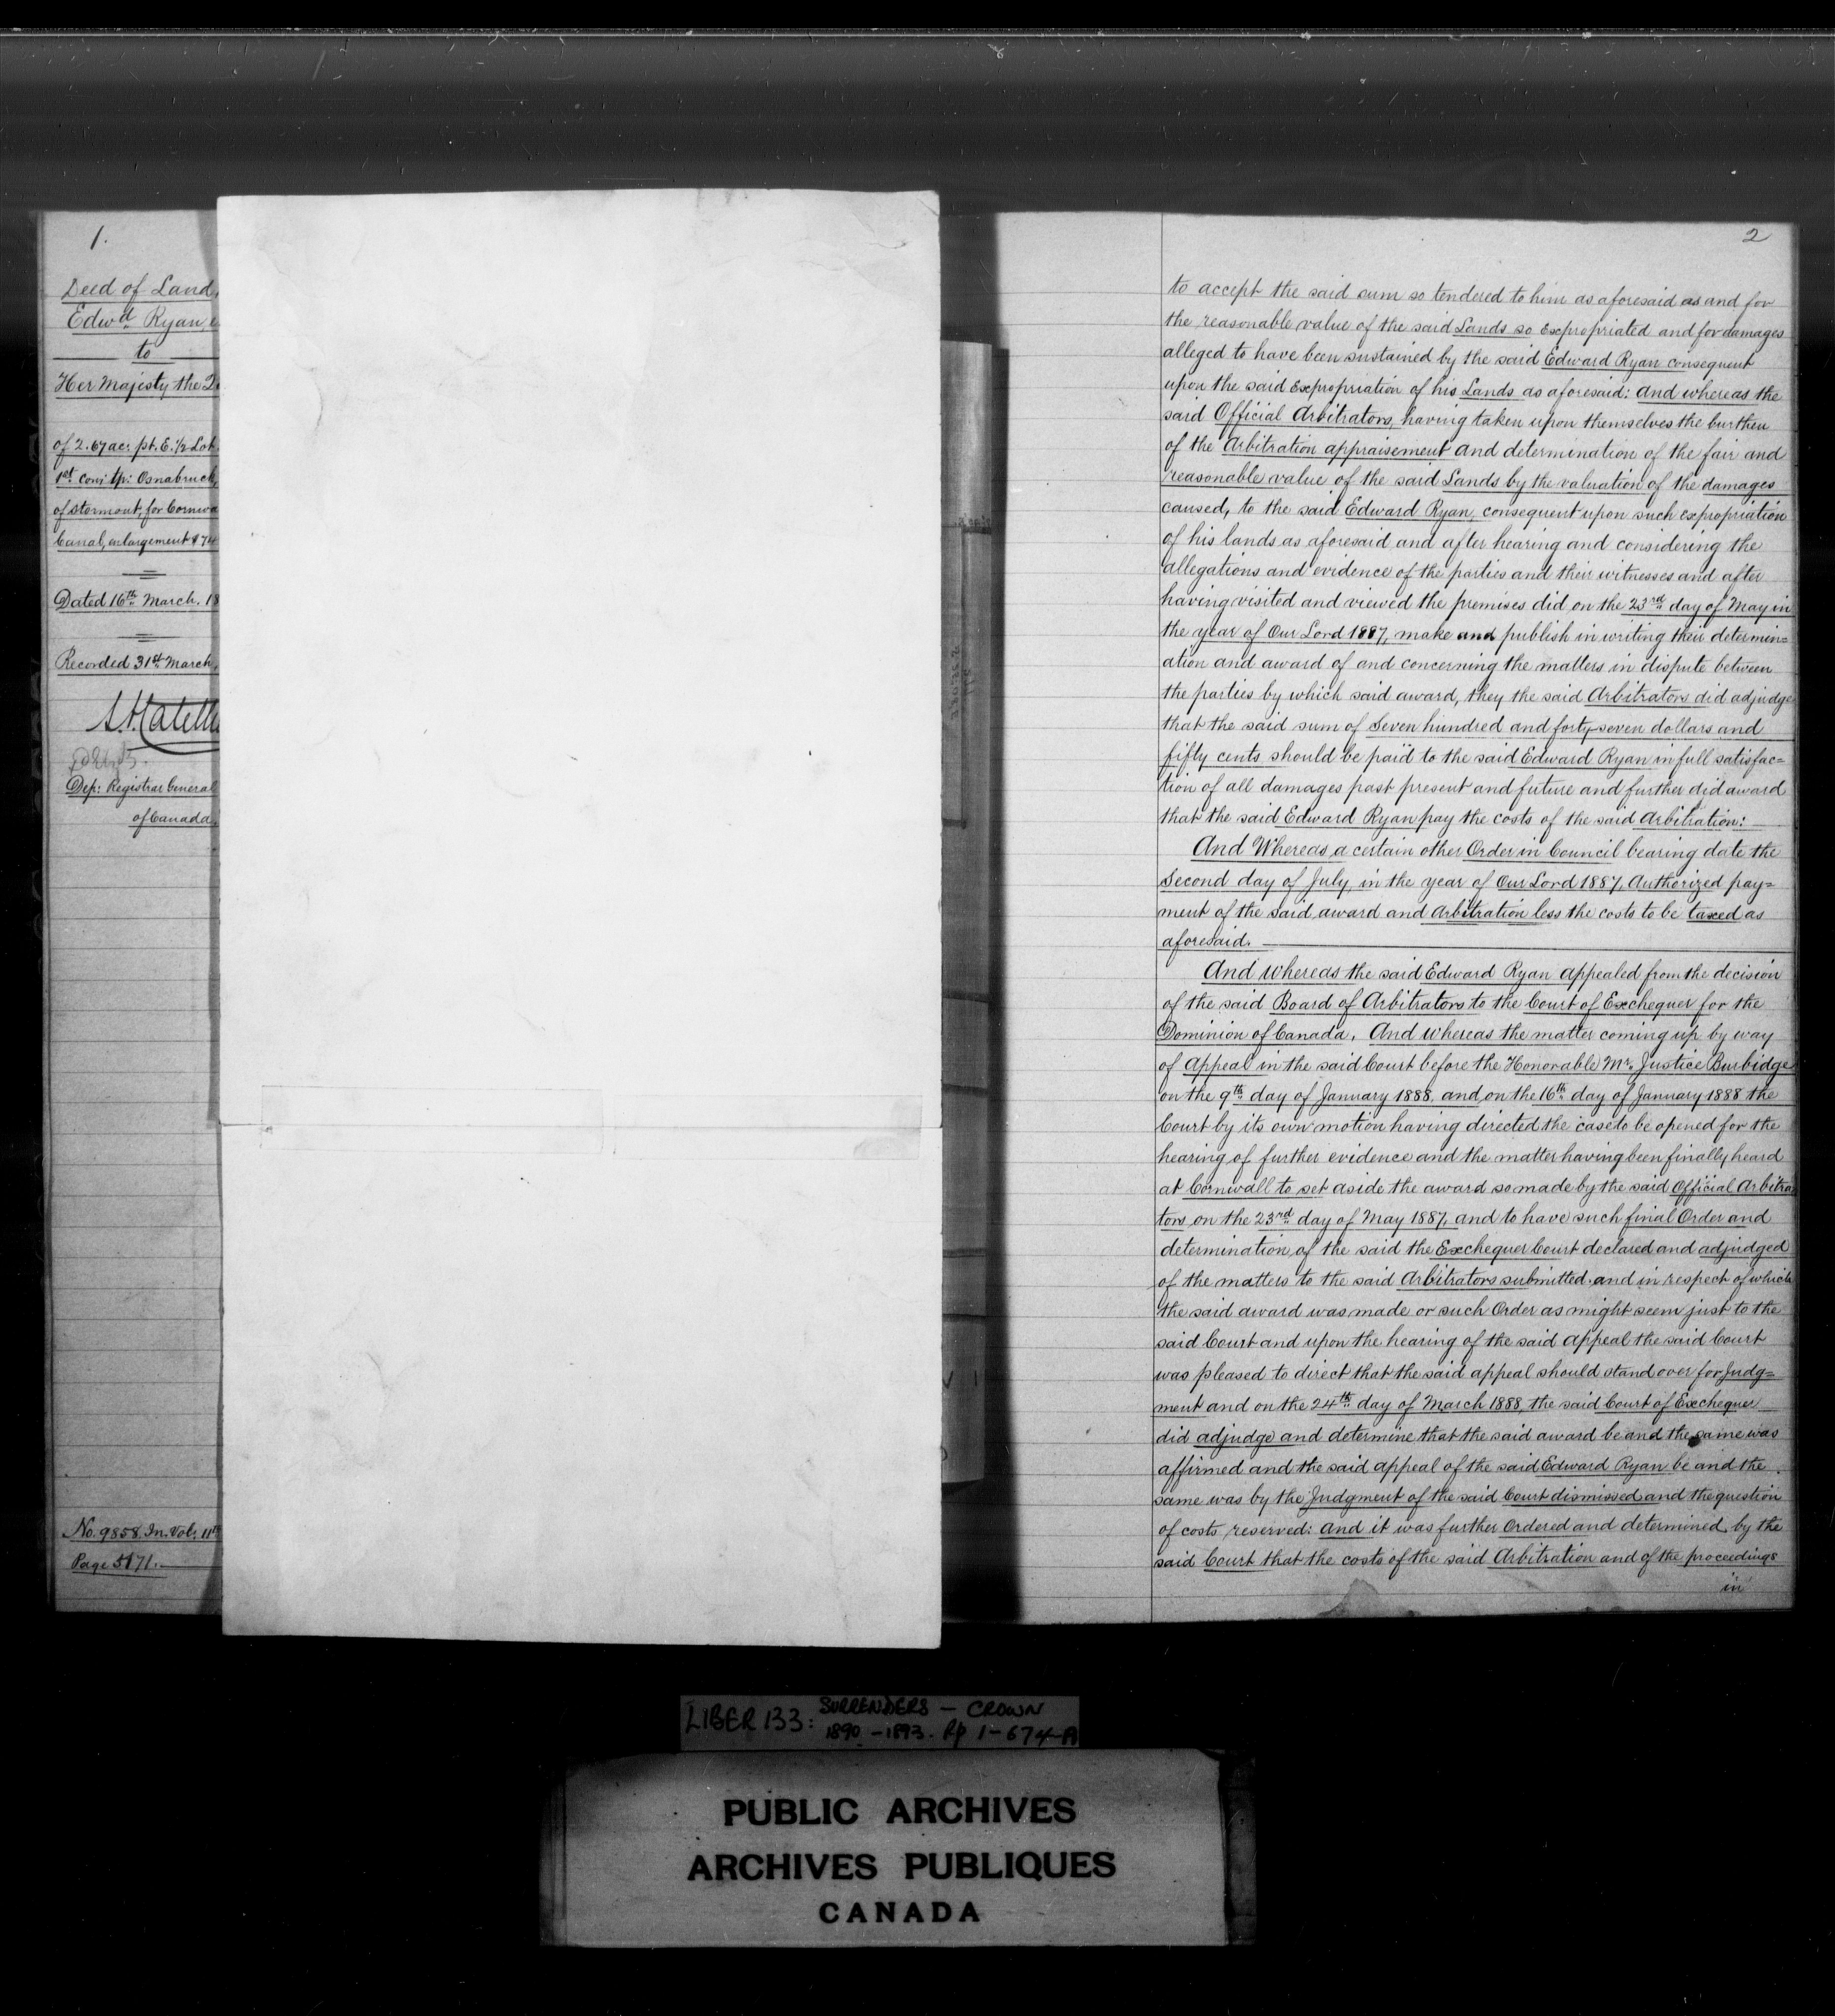 1.
Deed of Land,
Edwd Ryan,
to
Her Majesty the
of 2.67 ac: pt. E. 1/2 Lot
1st con: tp: Osnabruck,
of Stormont, for Cornwa
Canal, enlargement $74
Dated 16th March. 18
Recorded 31st March,
Dep: Registrar General
of Canada.
No. 9858. In. Vol: 11th
Page 5171.
2
to accept the said sum so tendered to him as aforesaid as and for
the reasonable value of the said Lands so Expropriated and for damages
alleged to have been sustained by the said Edward Ryan consequent
upon the said Expropriation of his Lands as aforesaid: And whereas the
said Official Arbitrators, having taken upon themselves the burthen
of the Arbitration appraisement and determination of the fair and
reasonable value of the said Lands by the valuation of the damages
caused, to the said Edward Ryan, consequent upon such expropriation
of his lands as aforesaid and after hearing and considering the
allegations and evidence of the parties and their witnesses and after
having visited and viewed the premises did on the 23rd day of May in
the year of Our Lord 1887, make and publish in writing their determin=
ation and award of and concerning the matters in dispute between
the parties by which said award, they the said Arbitrators did adjudge
that the said sum of Seven hundred and forty seven dollars and
fifty cents should be paid to the said Edward Ryan in full satisfac=
tion of all damages past present and future and further did award
that the said Edward Ryan pay the costs of the said Arbitration:
And Whereas a certain other Order in Council bearing date the
Second day of July, in the year of Our Lord 1887, Authorized pay=
ment of the said award and Arbitration less the costs to be taxed as
aforesaid.
And whereas the said Edward Ryan appealed from the decision
of the said Board of Arbitrators to the Court of Exchequer for the
Dominion of Canada. And whereas the matter coming up by way
of Appeal in the said Court before the Honorable Mr. Justice Burbidge
on the 9th day of January 1888, and on the 16th day of January 1888 the
Court by its own motion having directed the case to be opened for the
hearing of further evidence and the matter having been finally heard
at Cornwall to set aside the award so made by the said Official Arbitra
tors on the 23rd day of May 1887, and to have such final Order and
determination of the said the Exchequer Court declared and adjudged
of the matters to the said Arbitrators submitted and in respect of which
the said award was made or such Order as might seem just to the
said Court and upon the hearing of the said appeal the said Court
was pleased to direct that the said appeal should stand over for Judg=
ment and on the 24th day of March 1888, the said Court of Exchequer
did adjudge and determine that the said award be and the same was
affirmed and the said appeal of the said Edward Ryan be and the
same was by the Judgment of the said Court dismissed and the question
of costs reserved: And it was further Ordered and determined by the
said Court that the costs of the said Arbitration and of the proceedings
in
LIBER 133: SURRENDERS - CROWN
1890 - 1893. pp 1-674-A
PUBLIC ARCHIVES
ARCHIVES PUBLIQUES
CANADA